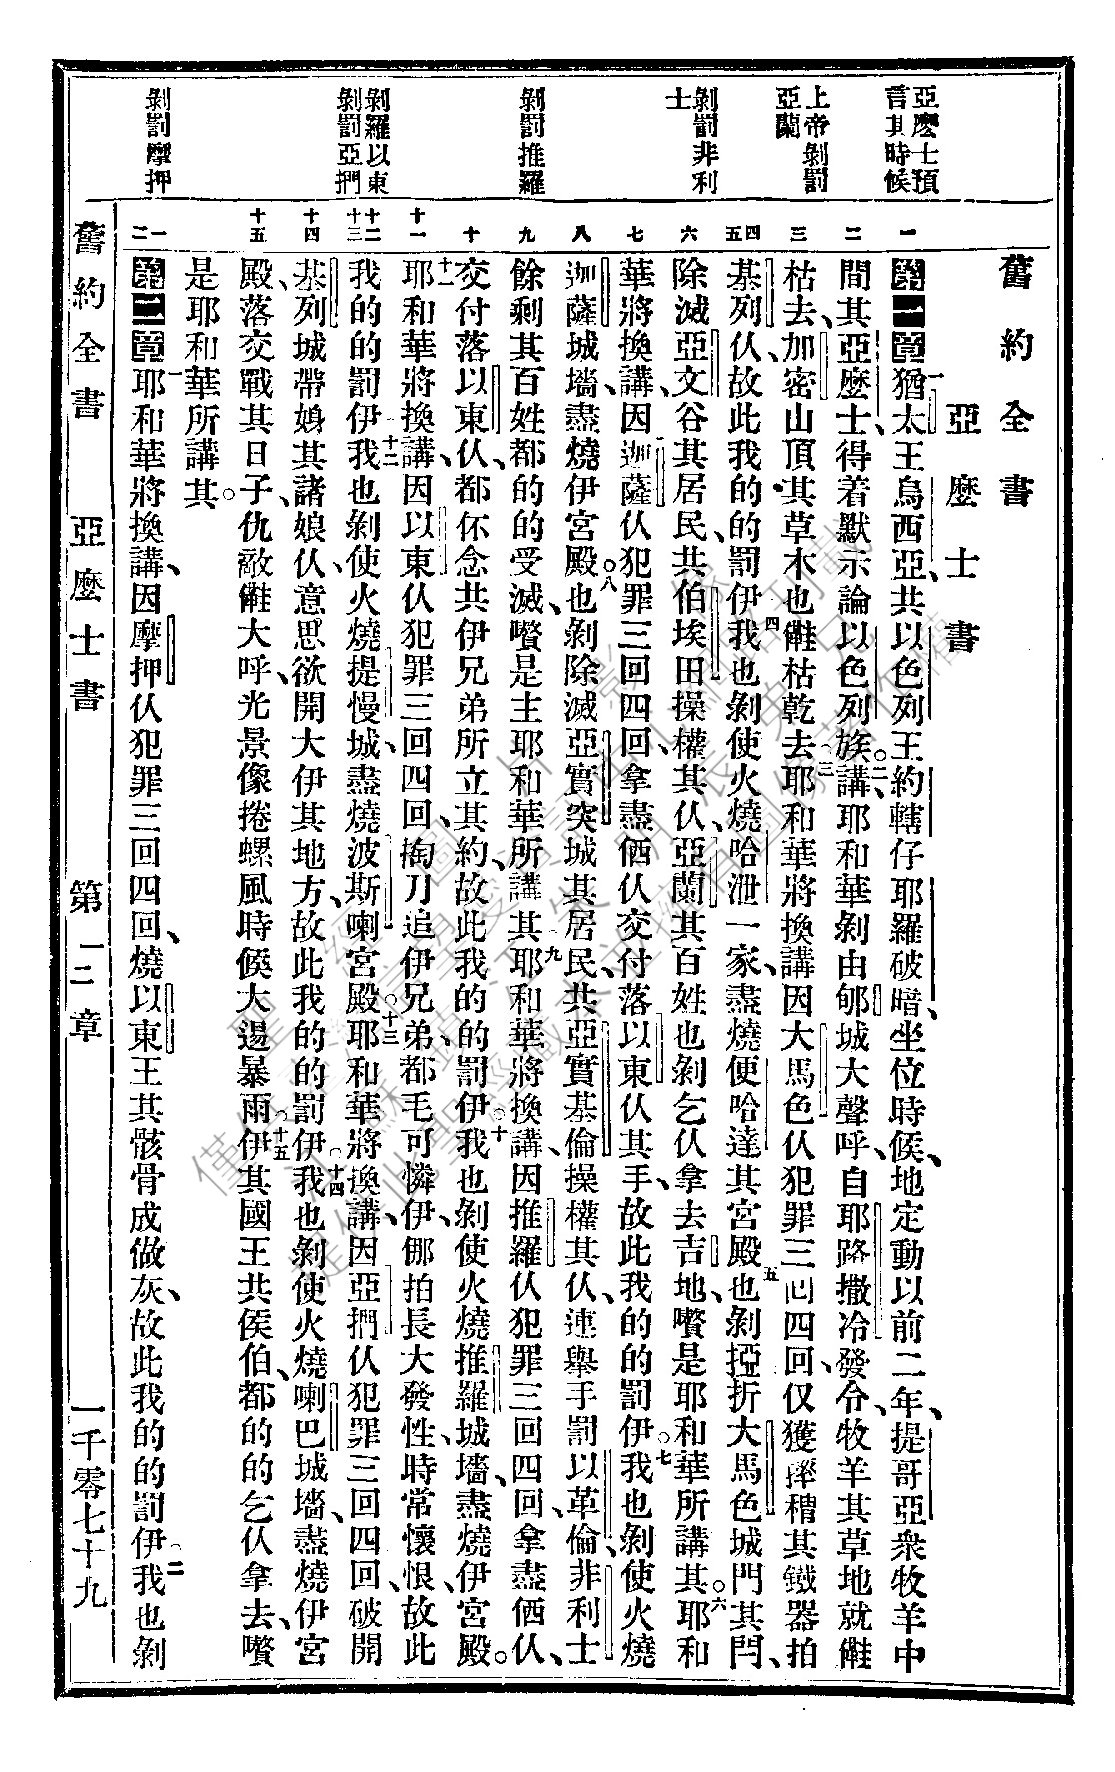 舊約全書
亞麼士書
亞麼士預
言其時候
上帝剝罰
亞蘭
剝罰非利
士
剝罰推羅
剝羅以東
剝罰亞捫
剝罰摩押
一
二
三
四
五
六
七
八
九
十
十一
十二
十三
十四
十五
一
二
第一章 一猶太王烏西亞、共以色列王約轄仔耶羅破暗、坐位時候、地定動以前二年、提哥亞衆牧羊中
間其亞麼士、得着默示論以色列族。二講、耶和華剝由郇城大聲呼、自耶路撒冷發令、牧羊其草地就
枯去、加密山頂其草木也 枯乾去。三耶和華將換講因大馬色仈犯罪三回四回、仅獲 其鐵器拍
基列仈、故此我的的罰伊、四我也剝使火燒哈泄一家、盡燒便哈達其宮殿、五也剝掗折大馬色城門其閂、
除滅亞文谷其居民、共伯埃田操權其仈、亞蘭其百姓也剝乞仈拿去吉地、 是耶和華所講其。六耶和
華將換講、因迦薩仈犯罪三回四回、拿盡仈交付落以東仈其手、故此我的的罰伊。七我也剝使火燒
迦薩城墻、盡燒伊宮殿。八也剝除滅亞實突城其居民、共亞實基倫操權其仈、連舉手罰以革倫、非利士
餘剩其百姓、都的的受滅、 是主耶和華所講其。九耶和華將換講、因推羅仈犯罪三回四回、拿盡仈、
交付落以東仈、都伓念共伊兄弟所立其約、故此我的的罰伊。十我也剝使火燒推羅城墻、盡燒伊宮殿。
十一耶和華將換講、因以東仈犯罪三回四回、掏刀追伊兄弟、都毛可憐伊、 拍長大發性、時常懷恨、故此
我的的罰伊、十二我也剝使火燒提慢城、盡燒波斯喇宮殿。十三耶和華將換講、因亞捫仈犯罪三回四回、破開
基列城帶娠其諸娘仈、意思欲開大伊其地方、故此我的的罰伊。十四我也剝使火燒喇巴城墻、盡燒伊宮
殿、落交戰其日子、仇敵 大呼、光景像捲螺風時候大逿暴雨。十五伊其國王共侯伯、都的的乞仈拿去、
是耶和華所講其。
第二章 一耶和華將換講、因摩押仈犯罪三回四回、燒以東王其骸骨成做灰、故此我的的罰伊。二我也剝
舊約全書 亞麼士書 第一二章 一千零七十九